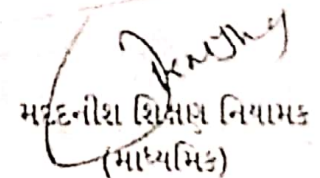 મદદનીશ શિક્ષણ નિયામક
(માધ્યમિક)